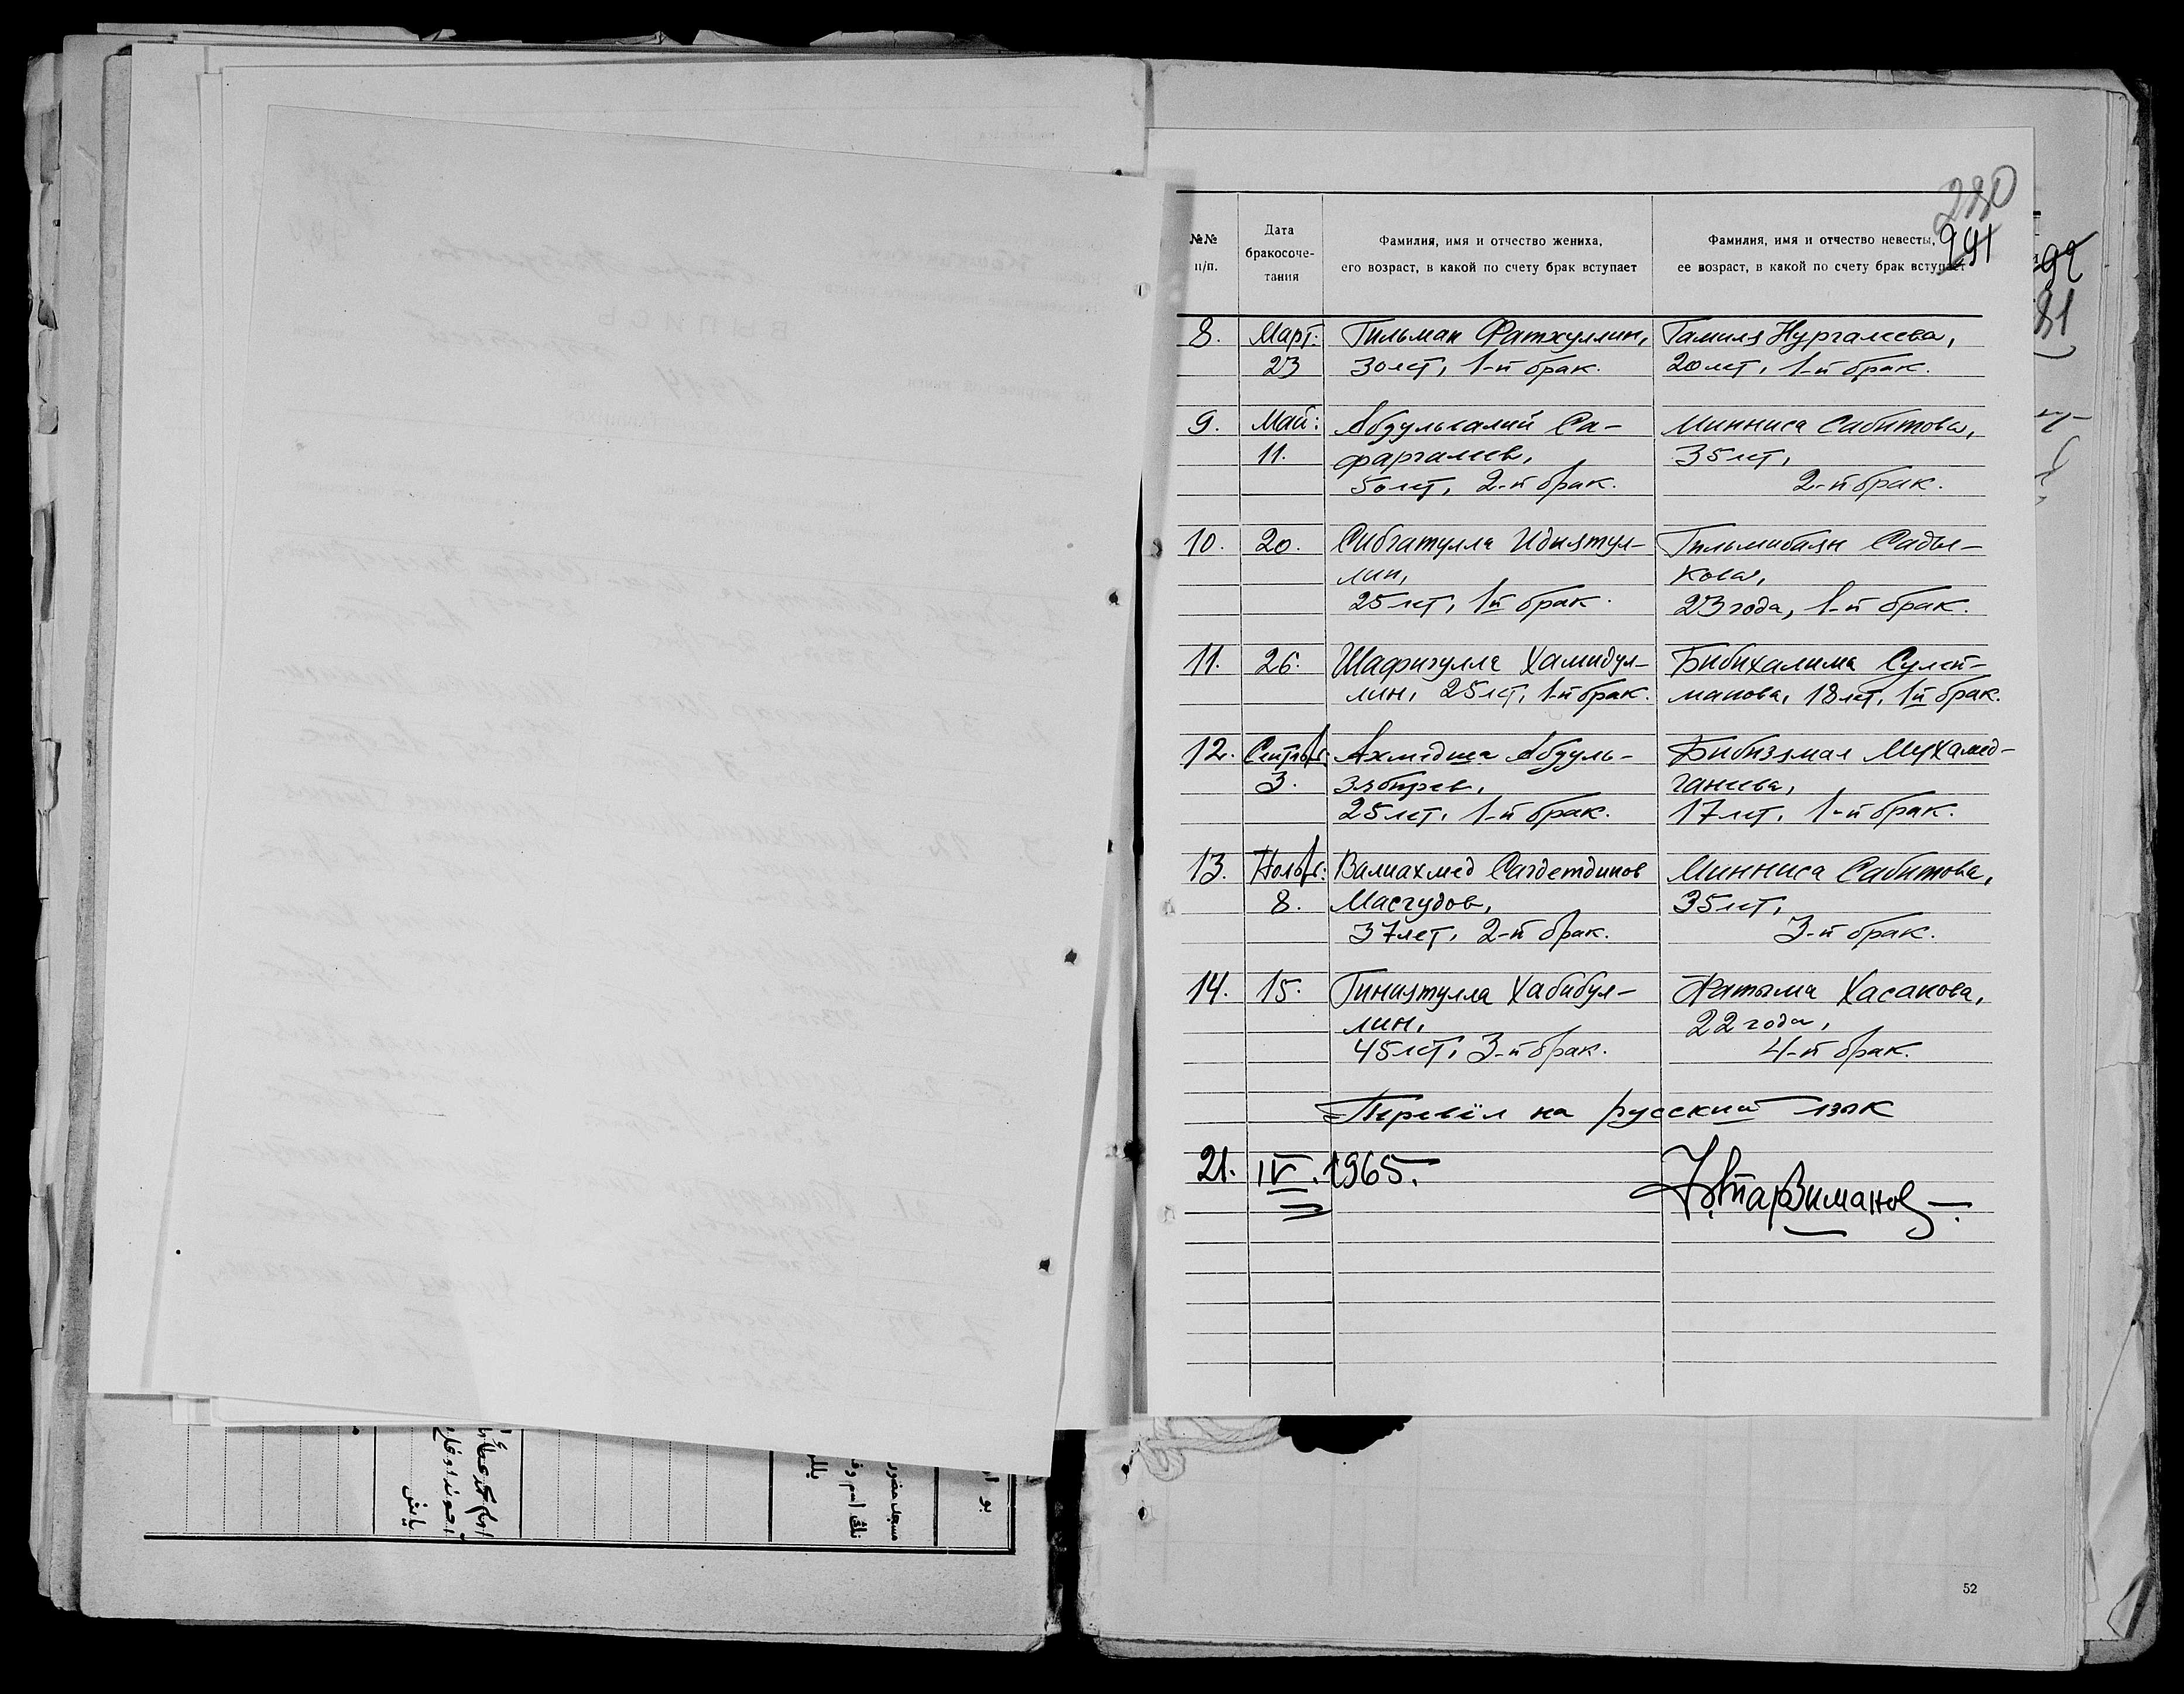 280
291
№№
п/п.
Дата
бракосоче-
тания
Фамилия, имя и отчество жениха,
его возраст, в какой по счету брак вступает
Фамилия, имя и отчество невесты,
ее возраст, в какой по счету брак вступает
92
81
8. Март: Гильман Фатхуллин, Гамиля Нургалеева,
23 30 лет, 1-й брак. 20 лет, 1-й брак.
9. Май: Абдульгалий Са- Минниса Сабитова,
11. фаргалиев, 35 лет,
50 лет, 2-й брак. 2-й брак.
10. 20. Сибгатулла Идиятул- Гильмибаян Сады-
лин, кова,
25 лет, 1й брак. 23 года, 1-й брак.
11. 26. Шафигулла Хамидул- Бибихалима Сулей-
лин, 25 лет, 1-й брак. манова, 18 лет, 1й брак.
12. Сентябрь: Ахмедша Абдуль- Бибизямал Мухамед-
3. зябирев, ганеева,
25 лет, 1-й брак. 17 лет, 1-й брак.
13. Ноябрь: Валиахмед Сагдетдинов Минниса Сабитова,
8. Масгудов, 35 лет,
37 лет, 2-й брак. 3-й брак.
14. 15. Гиниятулла Хабибул- Фатыма Хасанова,
лин, 22 года,
45 лет, 3-й брак. 4-й брак.
Перевёл на русский язык
21. IV. 1965.
52